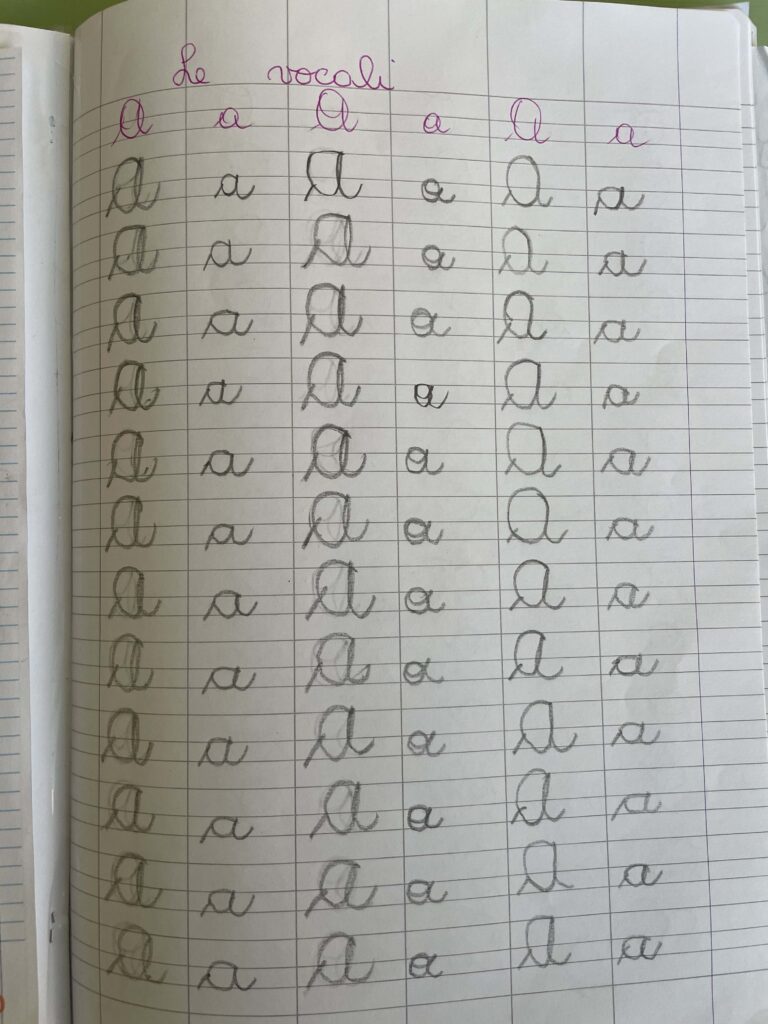 Le vocali
A a A a A a
A a A a A a
A a A a A a
A a A a A a
A a A a A a
A a A a A a
A a A a A a
A a A a A a
A a A a A a
A a A a A a
A a A a A a
A a A a A a
A a A a A a